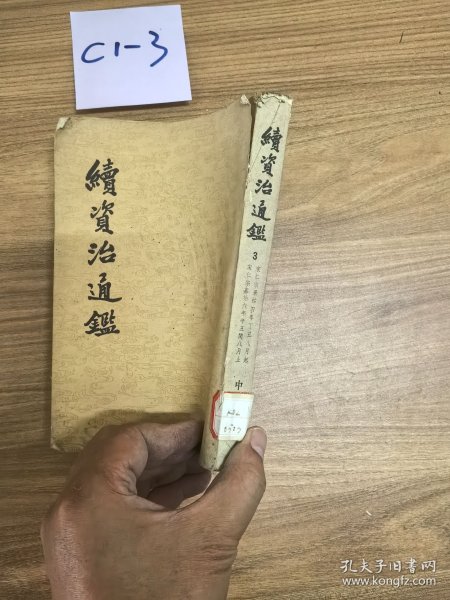 C1-3
續資治通鑑
續資治通鑑
3
中
孔夫子旧书网
www.kongfz.com